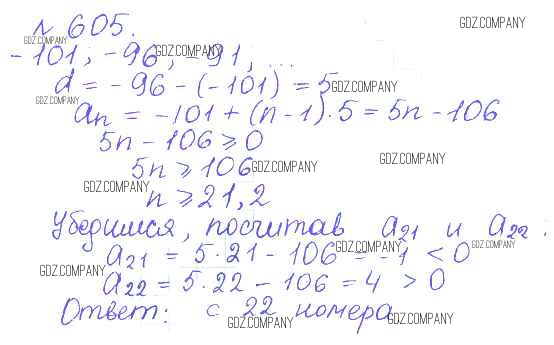 № 605. GDZ.COMPANY
GDZ.COMPANY
-101; -96; -91, ... GDZ.COMPANY
d = -96 - (-101) = 5 GDZ.COMPANY
GDZ.COMPANY
aₙ = -101 + (n-1)·5 = 5n - 106
5n - 106 ≥ 0
5n ≥ 106 GDZ.COMPANY GDZ.COMPANY
GDZ.COMPANY
n ≥ 21,2
Убедимся, посчитав a₂₁ и a₂₂.
a₂₁ = 5·21 - 106 = -1 < 0 GDZ.COMPANY GDZ.COMPANY
GDZ.COMPANY
a₂₂ = 5·22 - 106 = 4 > 0
Ответ: с 22 номера
GDZ.COMPANY GDZ.COMPANY